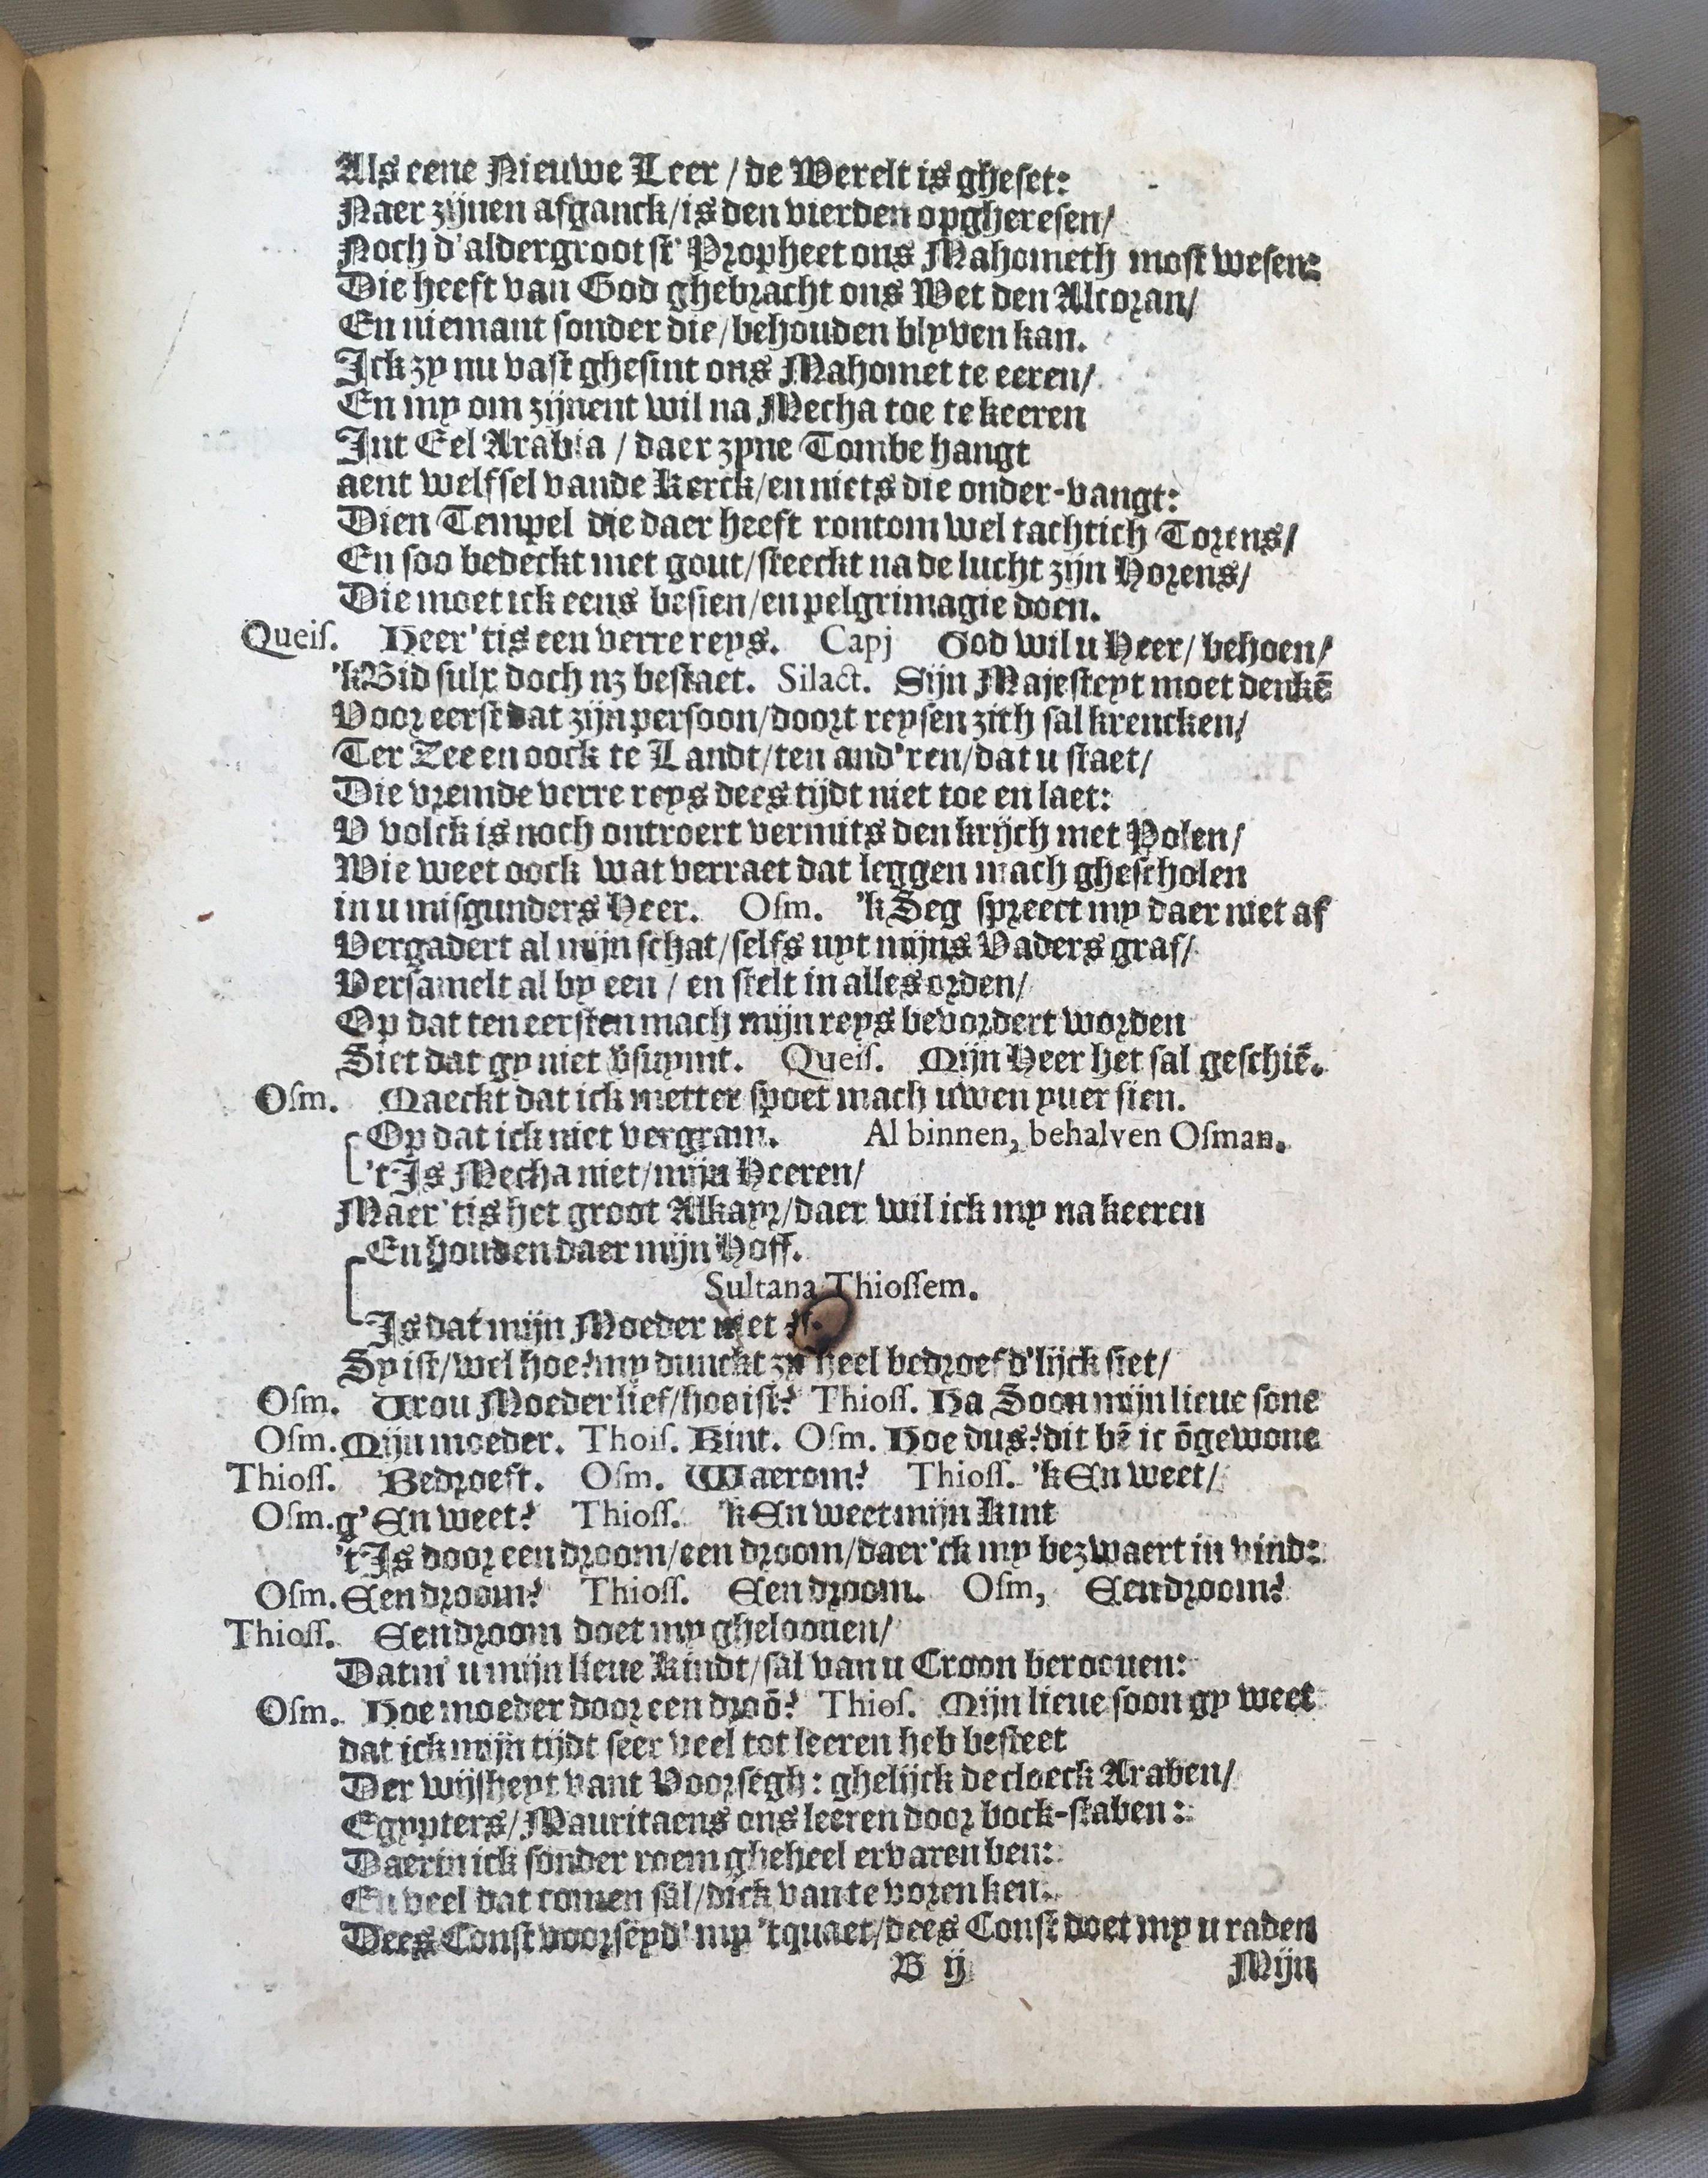 Als eene Nieuwe Leer / de Werelt is gheset:
Naer zijnen afganck / is den vierden opgheresen /
Noch d'aldergrootst' Propheet ons Mahometh most wesen:
Die heeft van God ghebracht ons Wet den Alcoran /
En niemant sonder die / behouden blyven kan.
Ick zy nu vast ghesint ons Mahomet te eeren /
En my om zijnent wil na Mecha toe te keeren
Int Eel Arabia / daer zyne Tombe hangt
aent welfsel vande Kerck / en niets die onder-vangt:
Dien Tempel die daer heeft rontom wel tachtich Torens /
En soo bedeckt met gout / steeckt na de lucht zijn Horens /
Die moet ick eens besien / en pelgrimagie doen.
Queis. Heer 'tis een verre reys. Capj God wil u Heer / behoen /
'kBid sulx doch nz bestaet. Silact. Sijn Majesteyt moet denkē
Voor eerst dat zijn persoon / doort reysen zich sal krencken /
Ter Zee en oock te Landt / ten and'ren / dat u staet /
Die vremde verre reys dees tijdt niet toe en laet:
V volck is noch ontroert vermits den krijch met Polen /
Wie weet oock wat verraet dat leggen mach ghescholen
in u misgunders Heer. Osm. 'k Seg spreect my daer niet af
Vergadert al mijn schat / selfs uyt mijns Vaders graf /
Versamelt al by een / en stelt in alles orden /
Op dat ten eersten mach mijn reys bevordert worden
Siet dat gy niet v̄suymt. Queis. Mijn Heer het sal geschiē.
Osm. Maeckt dat ick metter spoet mach uwen yuer sien.
Op dat ick niet vergram. Al binnen, behalven Osman.
't Is Mecha niet / mijn Heeren /
Maer 'tis het groot Alkayr / daer wil ick my na keeren
En houden daer mijn Hoff.
Sultana Thiossem.
Is dat mijn Moeder niet
Sy ist / wel hoe? my dunckt zy heel bedroefd'lijck siet /
Osm. Vrou Moeder lief / hoe ist? Thioss. Ha Soon mijn lieue sone
Osm. Mijn moeder. Thois. Kint. Osm. Hoe dus? dit bē ic ōgewone
Thioss. Bedroeft. Osm. Waerom? Thioss. 'k En weet /
Osm. g'En weet? Thioss. 'k En weet mijn Kint
't Is door een droom / een droom / daer 'ck my bezwaert in vind:
Osm. Een droom? Thioss. Een droom. Osm, Een droom?
Thioss. Een droom doet my gheloouen /
Datm' u mijn lieue Kindt / sal van u Croon beroouen:
Osm. Hoe moeder door een droō? Thios. Mijn lieue soon gy weet
dat ick mijn tijdt seer veel tot leeren heb besteet
Der wijsheyt vant Voorsegh: ghelijck de cloeck Araben /
Egypters / Mauritaens ons leeren door bock-staben:
Daerin ick sonder roem gheheel ervaren ben:
En veel dat comen sal / dick van te voren ken.
Dees Const voorseyd' my 'tquaet / dees Const doet my u raden
B ij Mijn